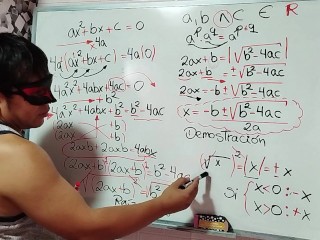 ax² + bx + c = 0
4a
4a(ax² + bx + c) = 4a(0)
4a²x² + 4abx + 4ac = 0
+b²
4a²x² + 4abx + b² = b² - 4ac
2ax b
2ax b
2axb + 2axb = 4abx
(2ax + b)(2ax + b) = b² - 4ac
√(2ax + b)² = √b² - 4ac
a, b ∧ c ∈ R
aᵖ a^q = a^(p+q)
2ax + b = |√b² - 4ac|
2ax + b = ±√b² - 4ac
2ax = -b ± √b² - 4ac
x = -b ± √b² - 4ac
2a
Demostración
(√x)² = |x| = ± x
Si { x < 0 : -x
x > 0 : +x